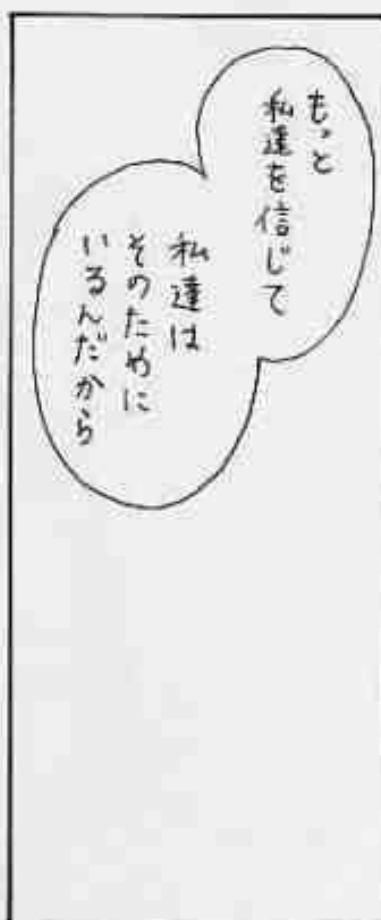 もっと
私達を信じて
私達は
そのために
いるんだから